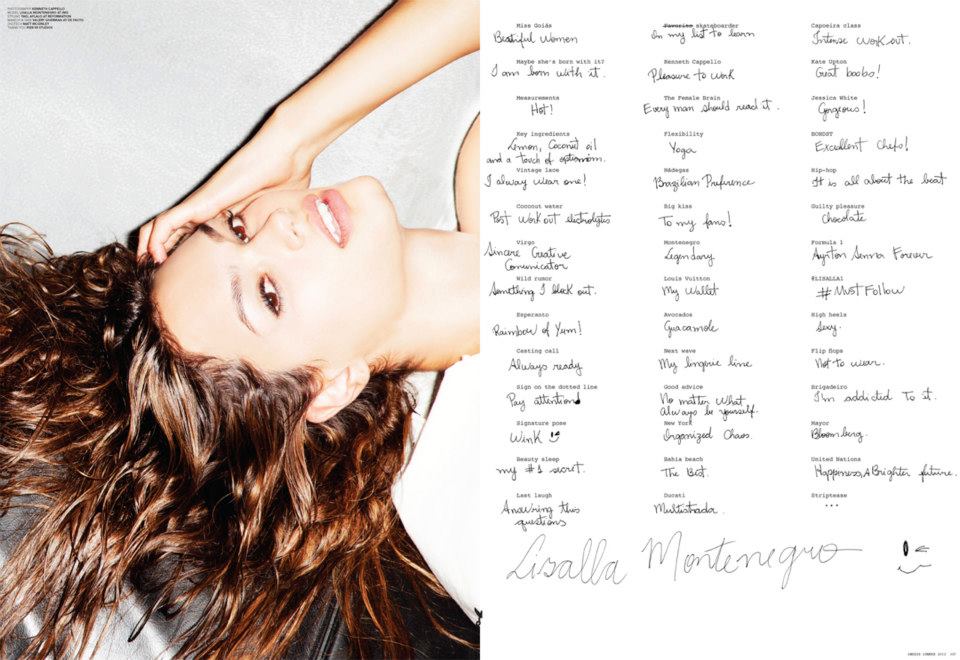 PHOTOGRAPHER KENNETH CAPPELLO
MODEL LISALLA MONTENEGRO AT IMG
Miss Goiás
Beatiful Women
Maybe she's born with it?
I am born with it.
Measurements
Hot!
Key ingredients
Lemon, Coconut oil
and a touch of optimism.
Vintage lace
I alway wear one!
Coconut water
Post work out electrolytes
Virgo
Sincere Creative
Comunicator
Wild rumor
Something I block out.
Esperanto
Rainbow of Yum!
Casting call
Always ready
Sign on the dotted line
Pay attention
Signature pose
Wink
Beauty sleep
my #1 secret.
Last laugh
Answring this
questions
Favorite skateboarder
On my list to learn
Kenneth Cappello
Pleasure to work
The Female Brain
Every man should read it.
Flexibility
Yoga
Nádegas
Brazilian Preference
Big kiss
To my fans!
Montenegro
Legendary
Louis Vuitton
My Wallet
Avocados
Guacamole
Next wave
My lingerie line
Good advice
No matter what
always be yourself.
New York
Organized Chaos.
Bahia beach
The Best.
Ducati
Multistrada.
Capoeira class
Intense work out.
Kate Upton
Great boobs!
Jessica White
Gorgeous!
BONDST
Excellent Chefs!
Hip-hop
It is all about the beat
Guilty pleasure
Chocolate
Formula 1
Ayrton Senna Forever
#LISALLA1
#MustFollow
High heels
Sexy.
Flip flops
Not to wear.
Brigadeiro
I'm addicted to it.
Mayor
Bloomberg.
United Nations
Happiness, A Brighter future.
Striptease
...
Lisalla Montenegro